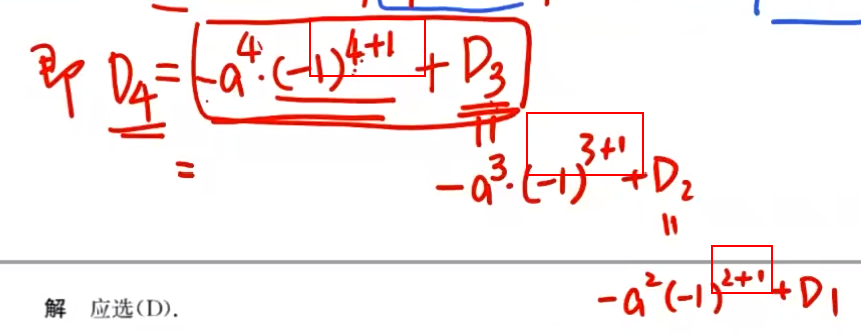 即 D₄ = -a⁴·(-1)⁴⁺¹ + D₃
=
-a³·(-1)³⁺¹ + D₂
-a²(-1)²⁺¹ + D₁
解 应选(D).